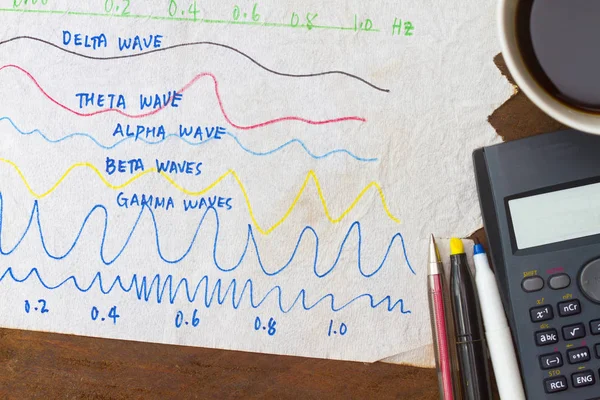 0.2 0.4 0.6 0.8 1.0 Hz
DELTA WAVE
THETA WAVE
ALPHA WAVE
BETA WAVES
GAMMA WAVES
0.2 0.4 0.6 0.8 1.0
SHIFT
x⁻¹ nCr
ab/c √
(—) °,,,
STO
RCL ENG